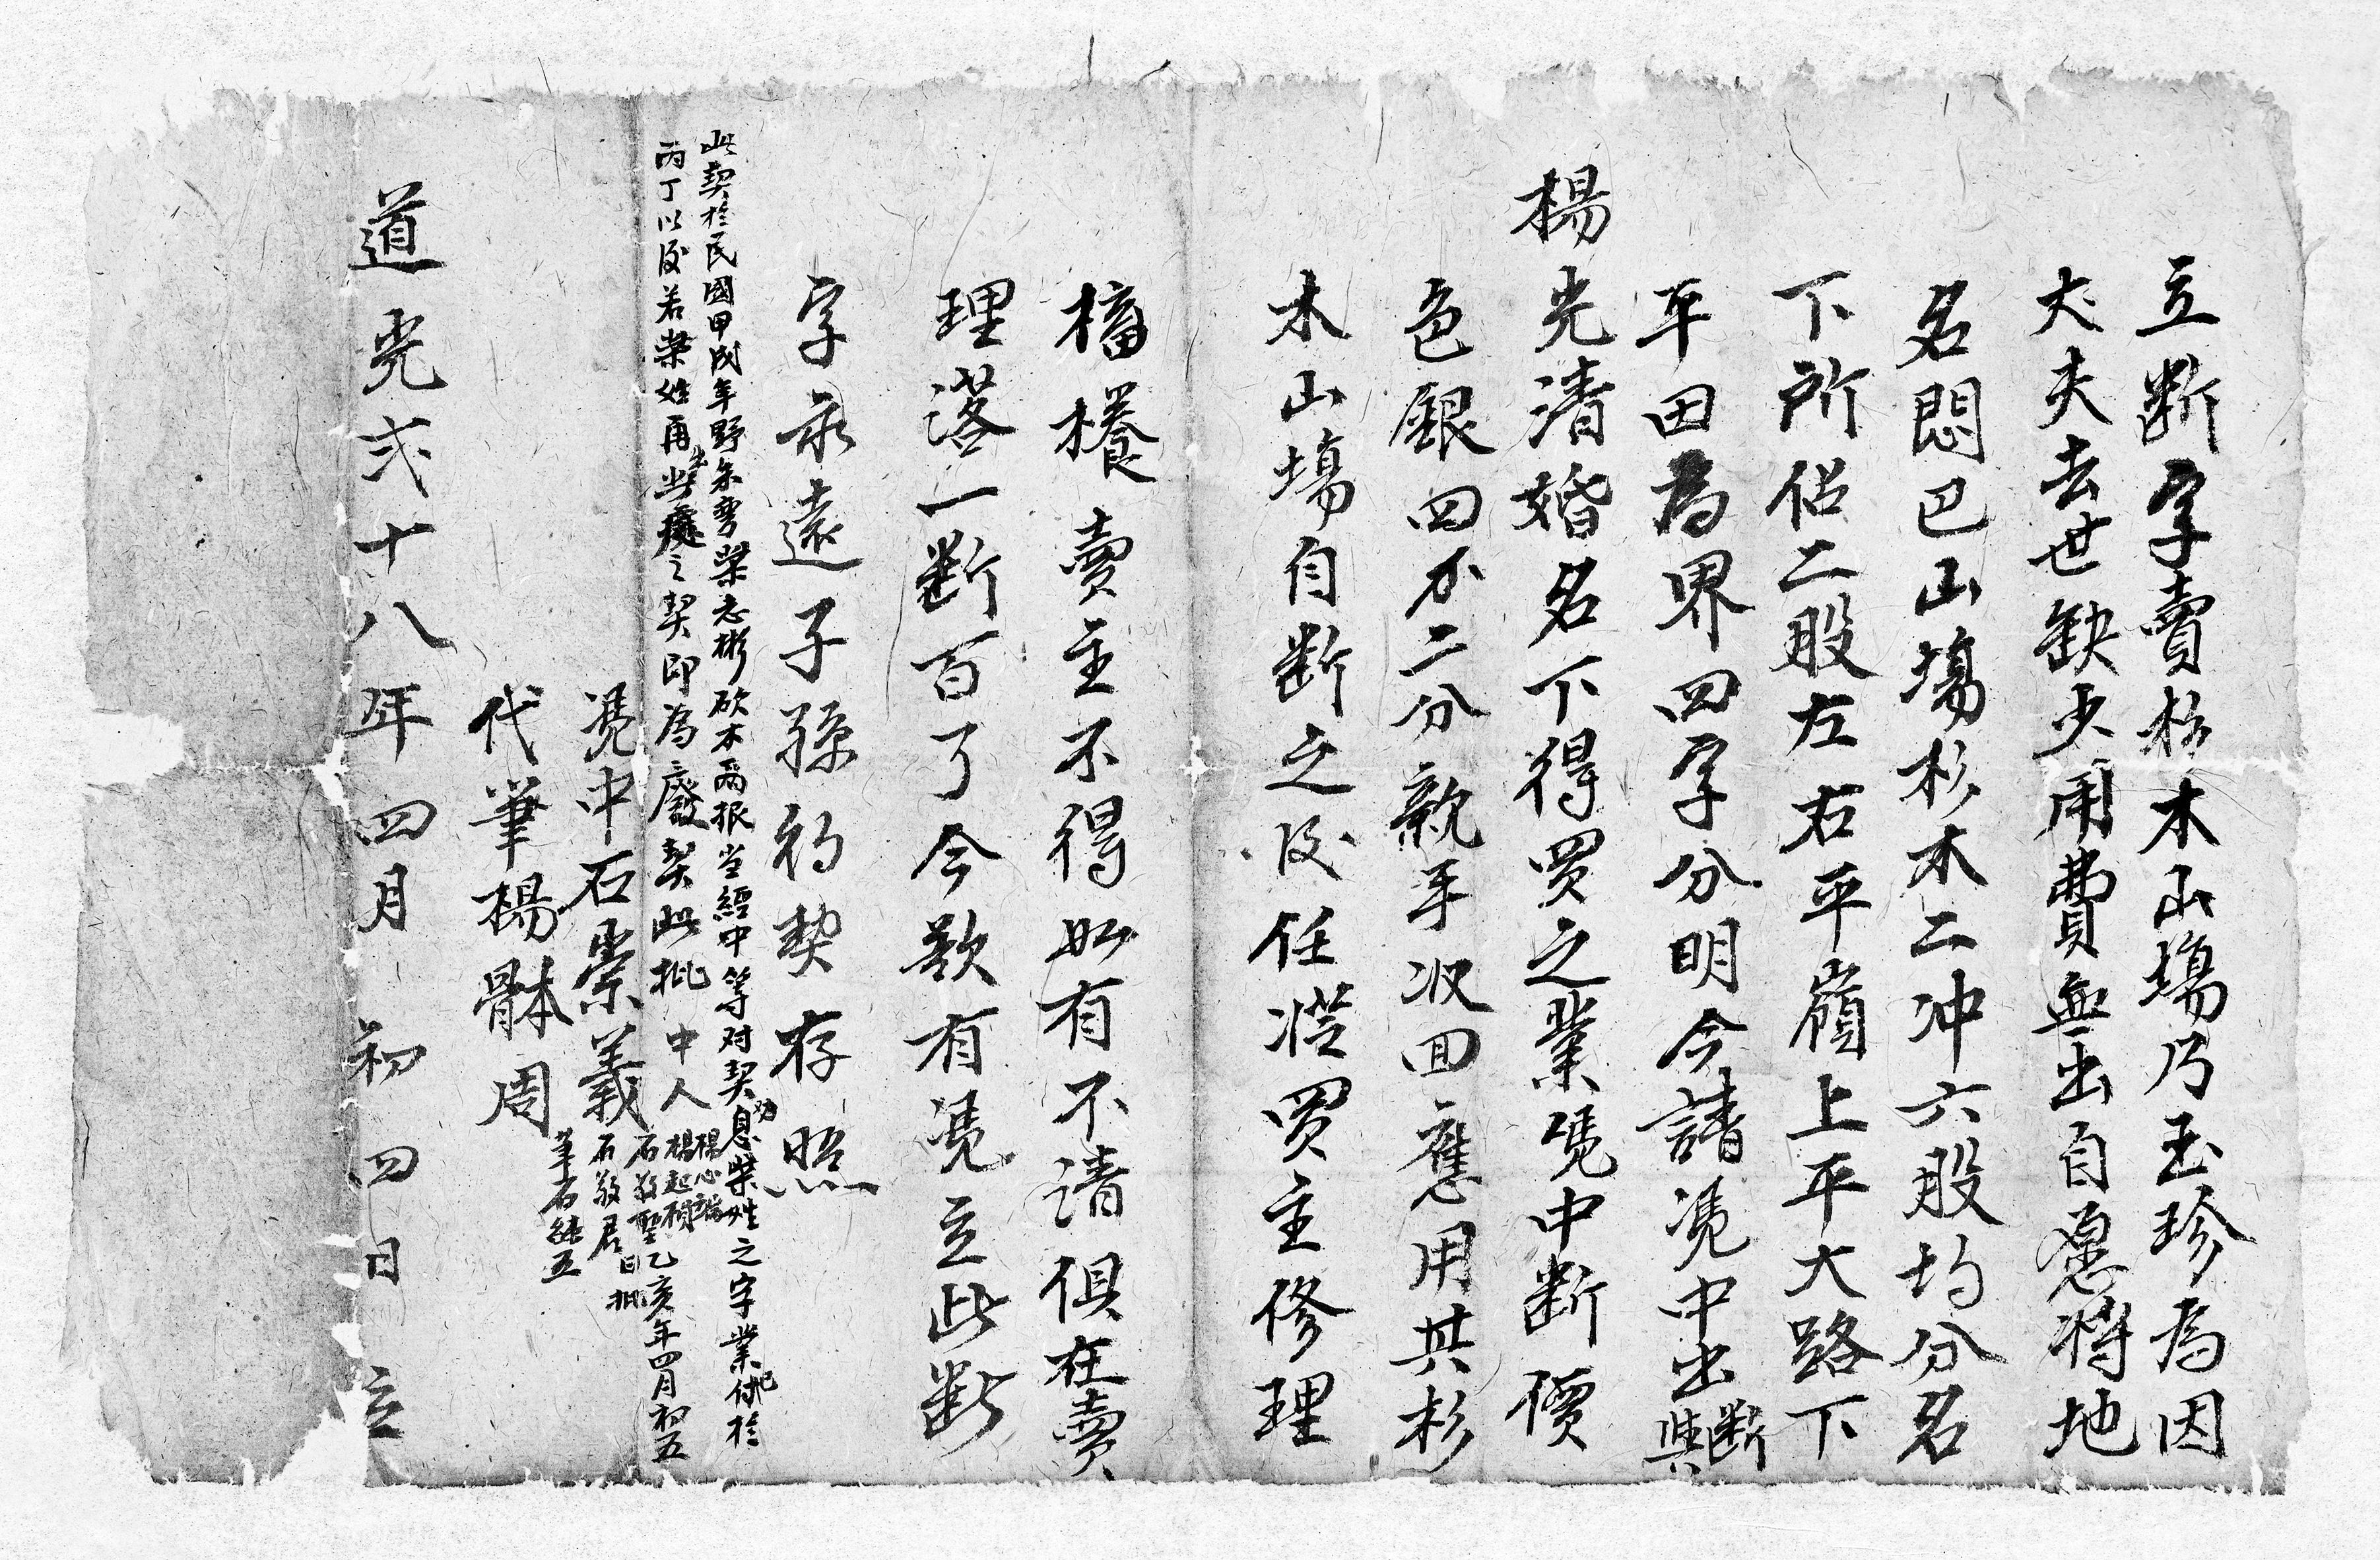 立断字賣杉木山塲乃玉珍為因
丈夫去世缺少用費無出自愿將地
名悶巴山塲杉木二冲六股均分名
下所佔二股左右平嶺上平大路下
平田為界四字分明今請凴中出断與
楊光清婚名下得買之業凴中断價
色銀四分二分親手収回應用其杉
木山塲自断之后任從買主修理
樢檨賣主不得如有不清俱在賣
理落一断百了今欲有凴立此断
字永遠子孫約契存照
此契於民國甲戌年野冲彎梁志彬砍木兩根当經中等对契息柴姓之字業休於
丙丁以後若柴姓再出此處之契即為廢契此批 中人
楊心端
楊起樹
石敬聖 乙亥年四月初五
石敬君 日批
筆石
凴中石崇義
代筆楊骵周
道光弍十八年四月初四日立